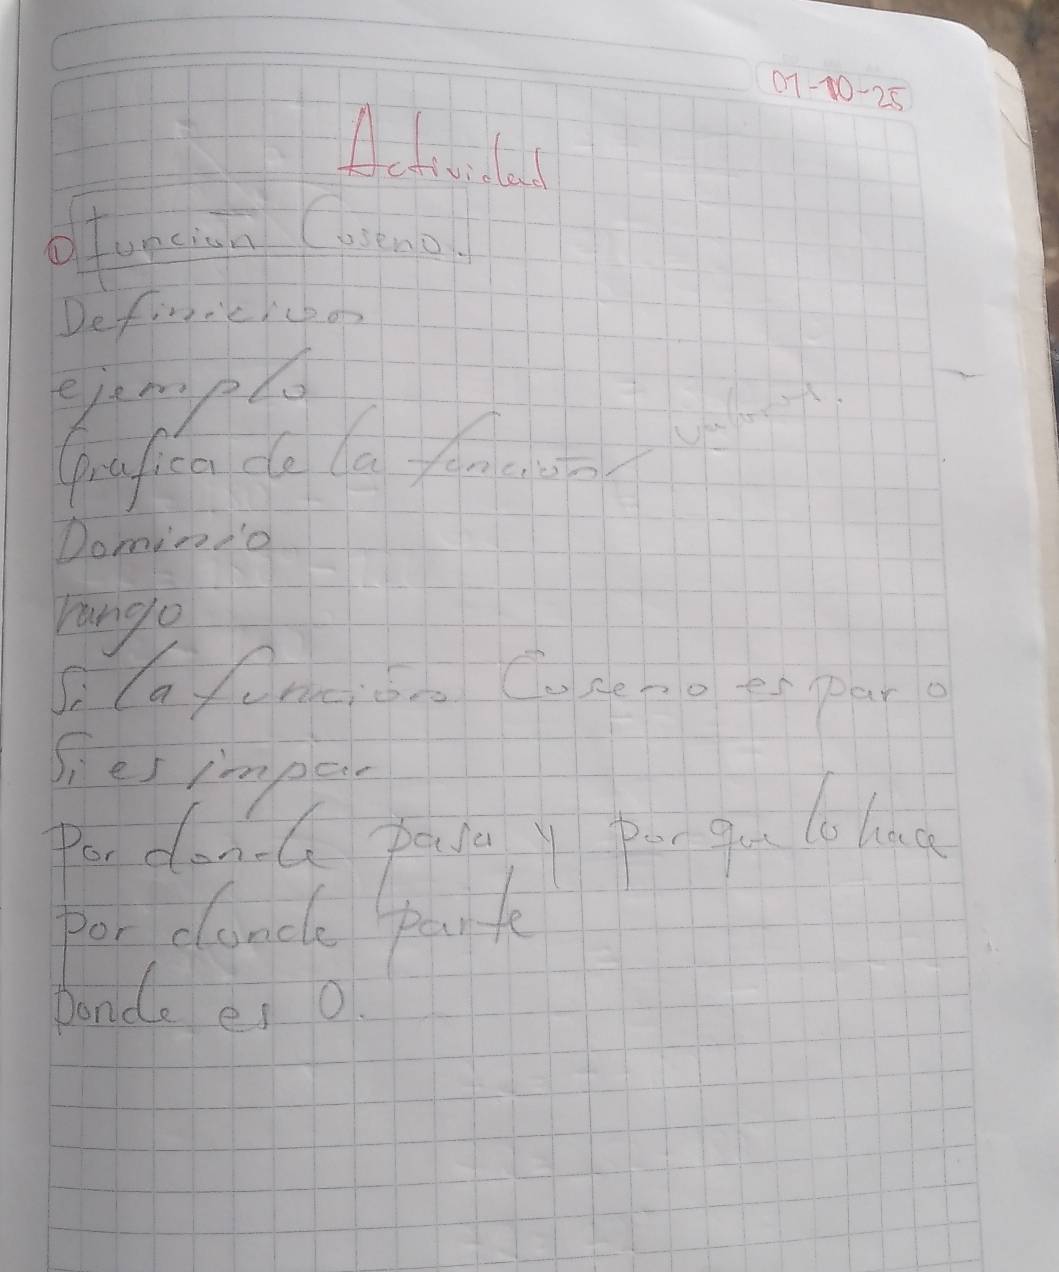 01-10-25
Actividad
① función Coseno.
Definición
ejemplo
valores.
Grafica de la función/
Dominio
rango
Si la función Coseno es par o
Si es impar
Por donde pasa y por que lo hace
por donde parte
Donde es 0.